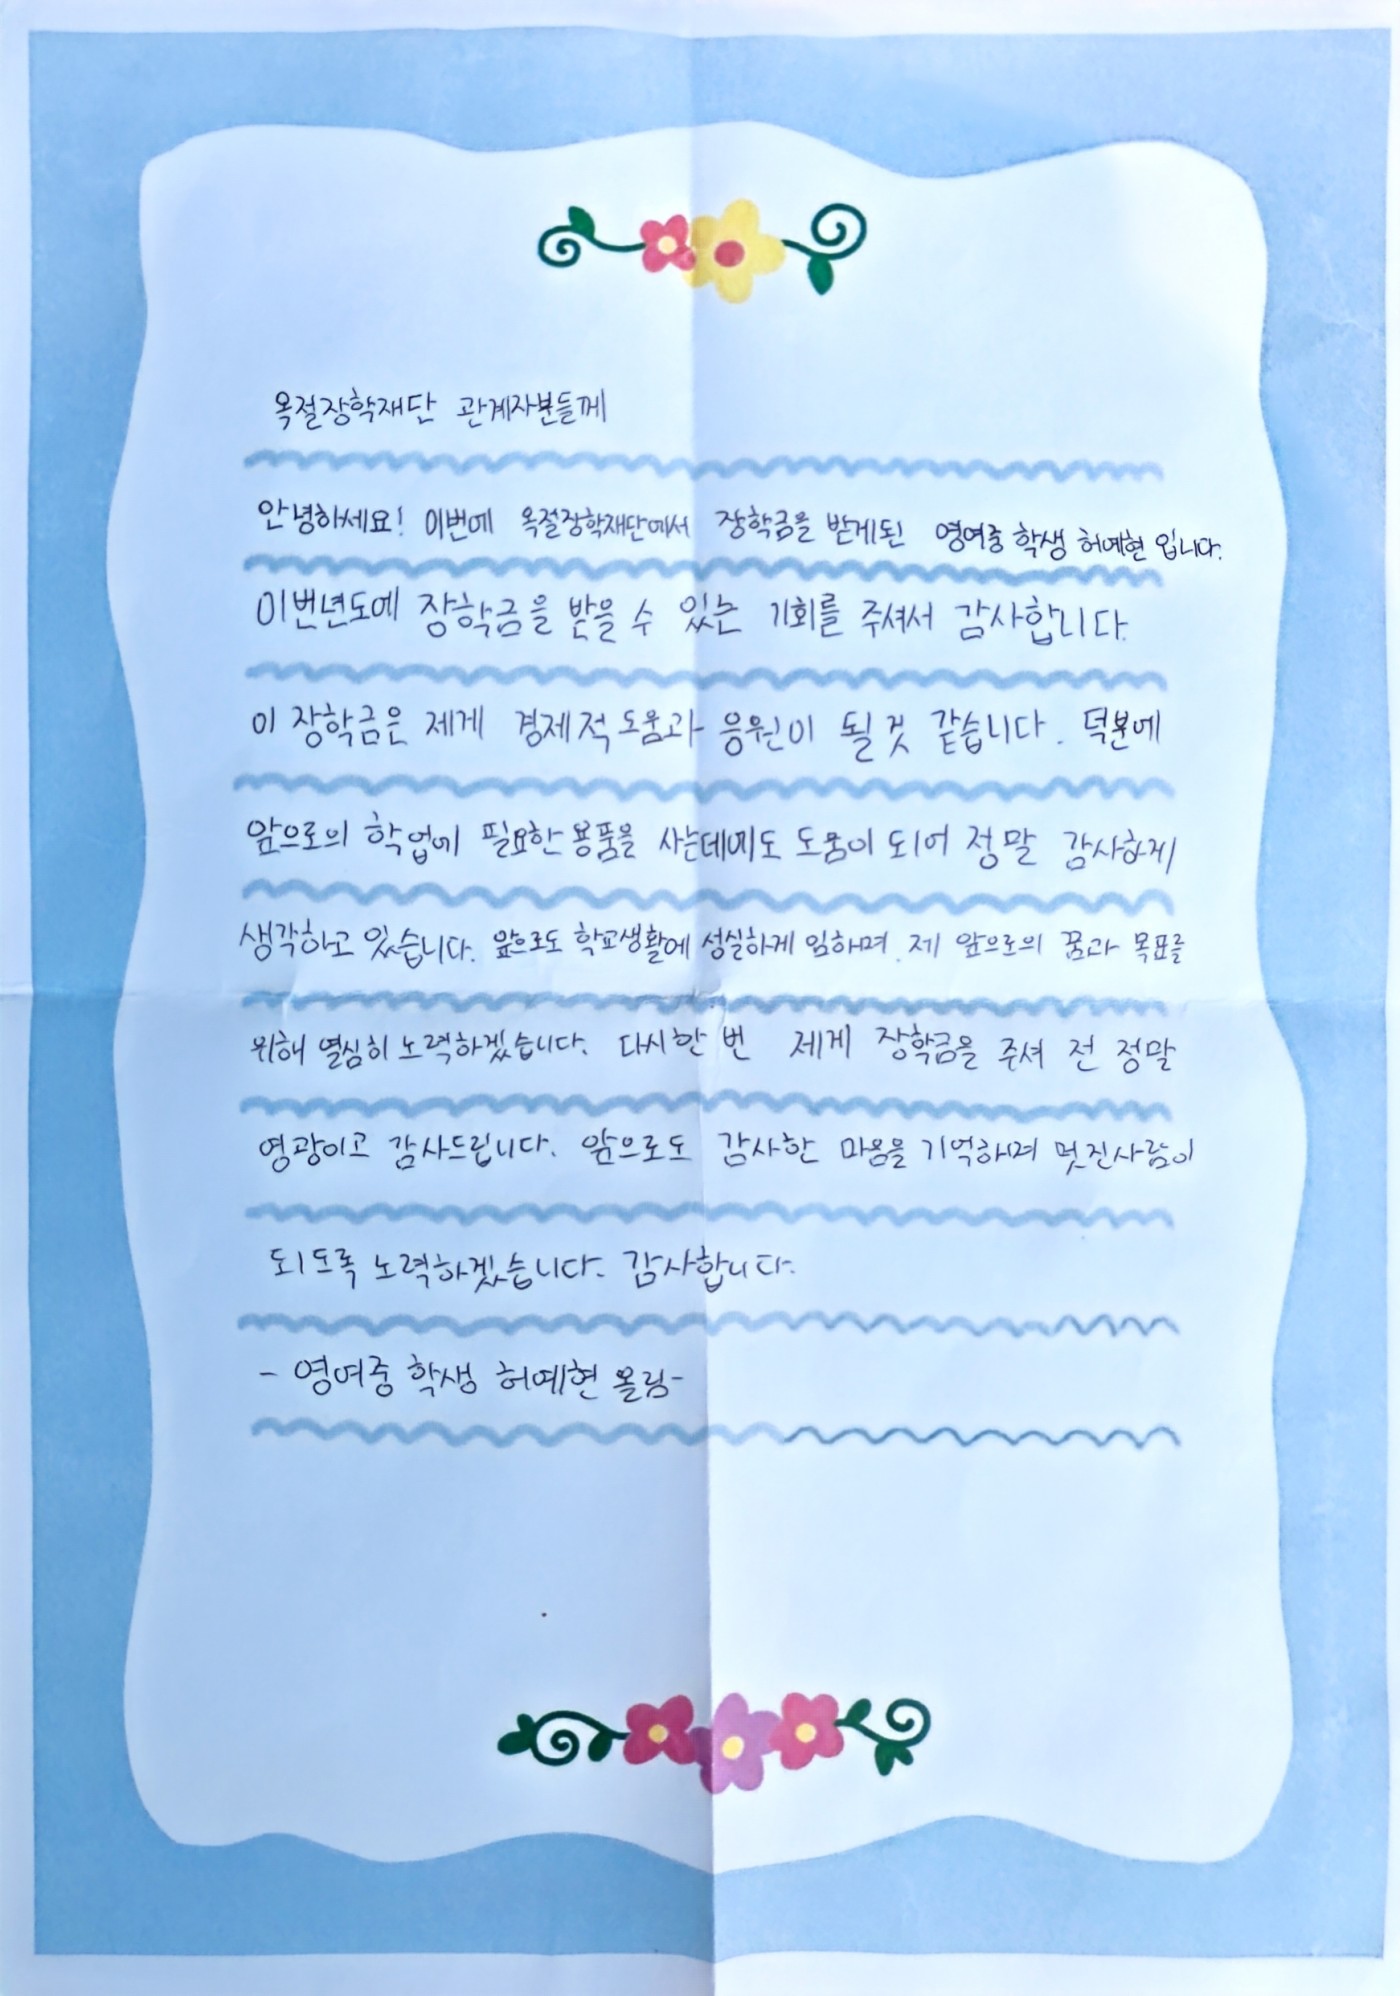 옥절장학재단 관계자분들께
안녕하세요! 이번에 옥절장학재단에서 장학금을 받게된 영여중 학생 허예현 입니다.
이번년도에 장학금을 받을 수 있는 기회를 주셔서 감사합니다.
이 장학금은 제게 경제적 도움과 응원이 될 것 같습니다. 덕분에
앞으로의 학업에 필요한 용품을 사는데에도 도움이 되어 정말 감사하게
생각하고 있습니다. 앞으로도 학교생활에 성실하게 임하며, 제 앞으로의 꿈과 목표를
위해 열심히 노력하겠습니다. 다시한 번 제게 장학금을 주셔 전 정말
영광이고 감사드립니다. 앞으로도 감사한 마음을 기억하며 멋진사람이
되도록 노력하겠습니다. 감사합니다.
- 영여중 학생 허예현 올림-